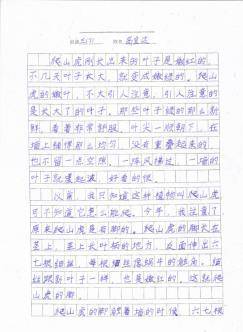 爬山虎刚长出来的叶子是嫩红的。
不几天叶子长大，就变成嫩绿的。爬山
虎的嫩叶，不大引人注意，引人注意的
是长大了的叶子，那些叶子绿的那么新
鲜，看着非常舒服。叶尖一顺朝下，在
墙上铺得那么均匀，没有重叠起来的，
也不留一点空隙。一阵风拂过，一墙的
叶子就漾起波，好看的很。
以前，我只知道这种植物叫爬山虎
可不知道它怎么能爬。今年，我注意了
原来爬山虎是有脚的。爬山虎的脚长在
茎上，茎上长叶柄的地方，反面伸出六
七根细丝，每根细丝像蜗牛的触角。细
丝跟新叶子一样，也是嫩红的。这就爬
山虎的脚。
爬山虎的脚触着墙的时候，六七根